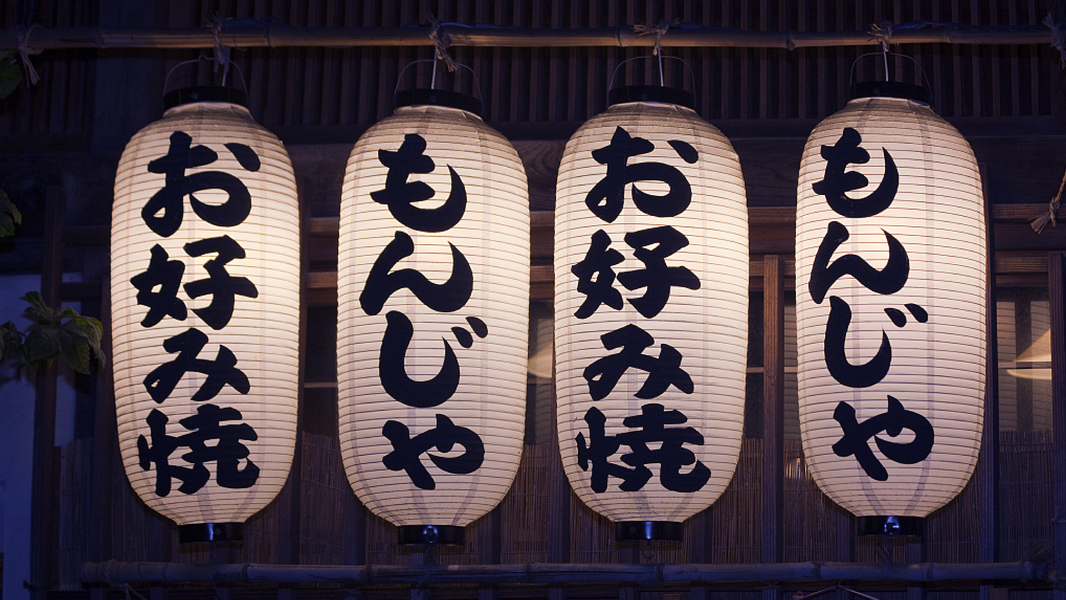 お好み焼
もんじゃ
お好み焼
もんじゃ